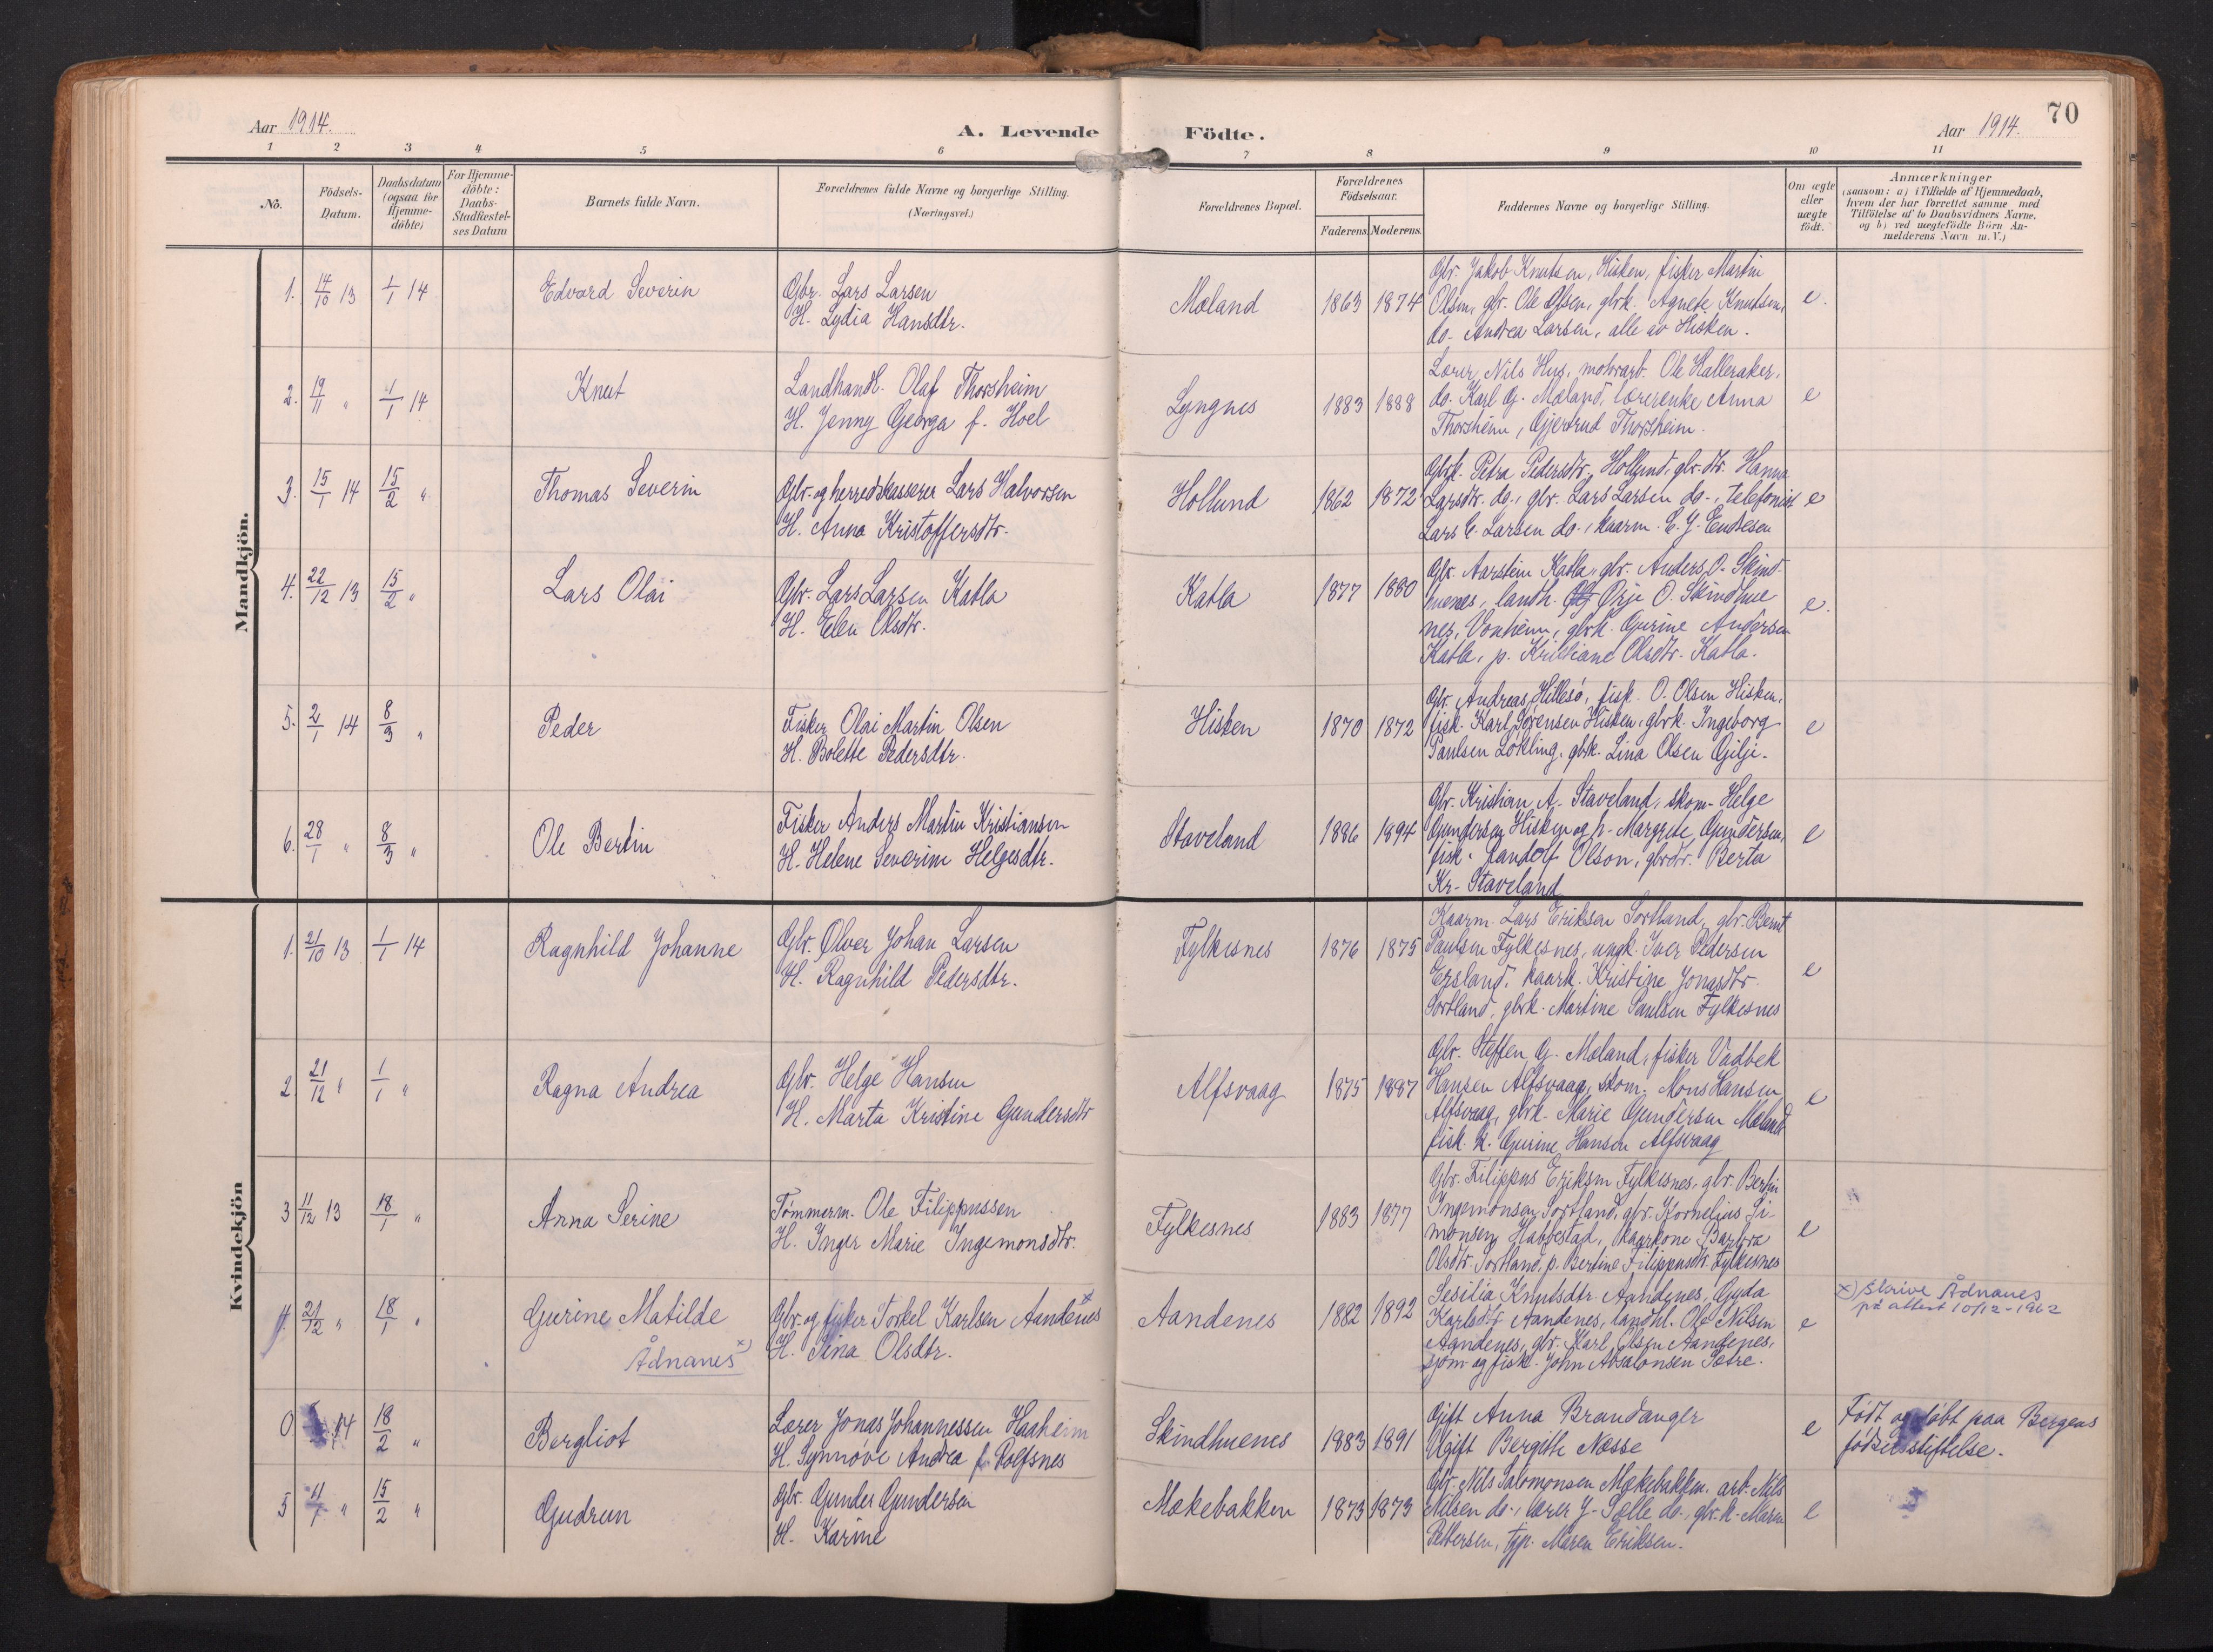 Aar 1914.
A. Levende Födte.
Aar 1914.
70
1 2 3 4 5 6 7 8 9 10 11
No.
Födsels-
Datum.
Daabsdatum
(ogsaa for
Hjemme-
döbte)
For Hjemme-
döbte:
Daabs-
Stadfæstel-
ses Datum
Barnets fulde Navn.
Forældrenes fulde Navne og borgerlige Stilling.
(Næringsvei.)
Forældrenes Bopæl.
Forældrenes
Födselsaar.
Faderens. Moderens.
Faddernes Navne og borgerlige Stilling.
Om ægte
eller
uægte
födt.
Anmærkninger
(saasom: a) i Tilfælde af Hjemmedaab,
hvem der har forrettet samme med
Tilföielse af to Daabsvidners Navne,
og b) ved uægtefödte Börn An-
melderens Navn m. V.)
Mandkjön.
1. 14/10 13 1/1 14 Edvard Severin
Gbr. Lars Larsen
H. Lydia Hansdtr.
Mæland 1863 1874
Gbr. Jakob Knutsen, Hisken, fisker Martin
Olsen, gbr. Ole Olsen, gbrk. Agnete Knutsen,
do- Andrea Larsen, alle av Hisken.
e.
2. 19/11 " 1/1 14 Knut
Landhandl. Olaf Thorsheim
H. Jenny Georga f. Hoel
Lyngnes 1883 1888
Lærer Nils Hus, motorarb. Ole Halleraker,
do. Karl G. Mæland, lærerenke Anna
Thorsheim, Gjertrud Thorsheim.
e
3. 15/1 14 15/2 " Thomas Severin
Gbr. og herredskasserer Lars Halvorsen
H. Anna Kristoffersdtr.
Hollund 1862 1872
Gbrk. Petra Pedersdtr. Hollund, gbr. dtr. Hanna
Larsdtr. do., gbr. Lars Larsen do-, telefonist
Lars E. Larsen do., kaarm. E. J. Endresen
e
4. 22/12 13 15/2 " Lars Olai
Gbr. Lars Larsen Katla
H. Elen Olsdtr.
Katla 1877 1880
Gbr. Aarstein Katla, gbr. Anders O. Skind-
huenes, landh. Ørje O. Skindhue
nes, Vonheim, gbrk. Gurine Andersen
Katla, p. Kristiane Olsdtr. Katla.
e.
5. 2/1 14 8/3 " Peder
Fisker Olai Martin Olsen
H. Bolette Pedersdtr.
Hisken 1870 1872
Gbr. Andreas Hillesø, fisk. O. Olsen Hisken,
fisk. Karl Sørensen Hisken, gbrk. Ingeborg
Paulsen Løkling, gbrk. Lina Olsen Gilje.
e
6. 28/1 " 8/3 " Ole Bertin
Fisker Anders Martin Kristiansen
H. Helene Severine Helgesdtr.
Staveland 1886 1894
Gbr. Kristian A. Staveland, skom. Helge
Gundersen Hisken og h. Margrete Gundersen,
fisk. Randolf Olson, gbrdtr. Berta
Kr. Staveland
e
Kvindekjön
1. 21/10 13 1/1 14 Ragnhild Johanne
Gbr. Ølver Johan Larsen
H. Ragnhild Pedersdtr.
Fylkesnes 1876 1875
Kaarm. Lars Eriksen Sortland, gbr. Bernt
Paulsen Fylkesnes, ungk. Iver Pedersen
Ersland, kaark. Kristine Jonasdtr.
Sortland, gbrk. Martine Paulsen Fylkesnes
e
2. 21/12 " 1/1 " Ragna Andrea
Gbr. Helge Hansen
H. Marta Kristine Gundersdtr
Alfsvaag 1875 1887
Gbr. Steffen G. Mæland, fisker Vadbek
Hansen Alfsvaag, skom. Mons Hansen
Alfsvaag, gbrk. Marie Gundersen Mæland
fisk. k. Gurine Hansen Alfsvaag
e
3 11/12 13 18/1 " Anna Serine
Tømmerm. Ole Filippussen
H. Inger Marie Ingemonsdtr.
Fylkesnes 1883 1877
Gbr. Filippus Eriksen Fylkesnes, gbr. Bertin
Ingemonsen Sortland, gbr. Kornelius Si-
monsen Habbestad, kaarkone Barbra
Olsdtr. Sortland, p. Bertine Filippusdtr. Fylkesnes
e
4. 21/12 " 18/1 " Gurine Matilde
Ådnanes x)
Gbr. og fisker Torkel Karlsen Aandenes x
H. Sina Olsdtr.
Aandenes 1882 1892
Sesilia Knutsdtr. Aandenes, Gyda
Karlsdtr Aandenes, landhl. Ole Nilsen
Aandenes, gbr. Karl Olsen Aandenes,
sjøm og fisk. John Absalonsen Sætre.
e
x) skrive Ådnanes
på attest 10/12-1962
0 14 18/2 " Bergliot
Lærer Jonas Johannessen Haaheim
H. Synnøve Andrea f. Rolfsnes
Skindhuenes 1883 1891
Gift Anna Brandanger
Ugift Bergithe Næsse
e
Født og døbt paa Bergens
fødselsstiftelse.
5 11/1 " 15/2 " Gudrun
Gbr. Gunder Gundersen
H. Karine
Mækebakken 1873 1873
Gbr. Nils Salomonsen Mækebakken, arb. Nils
Nilsen do-, lærer J. Sælle do., gbr. k. Maren
Pettersen, tjp. Maren Eriksen.
e